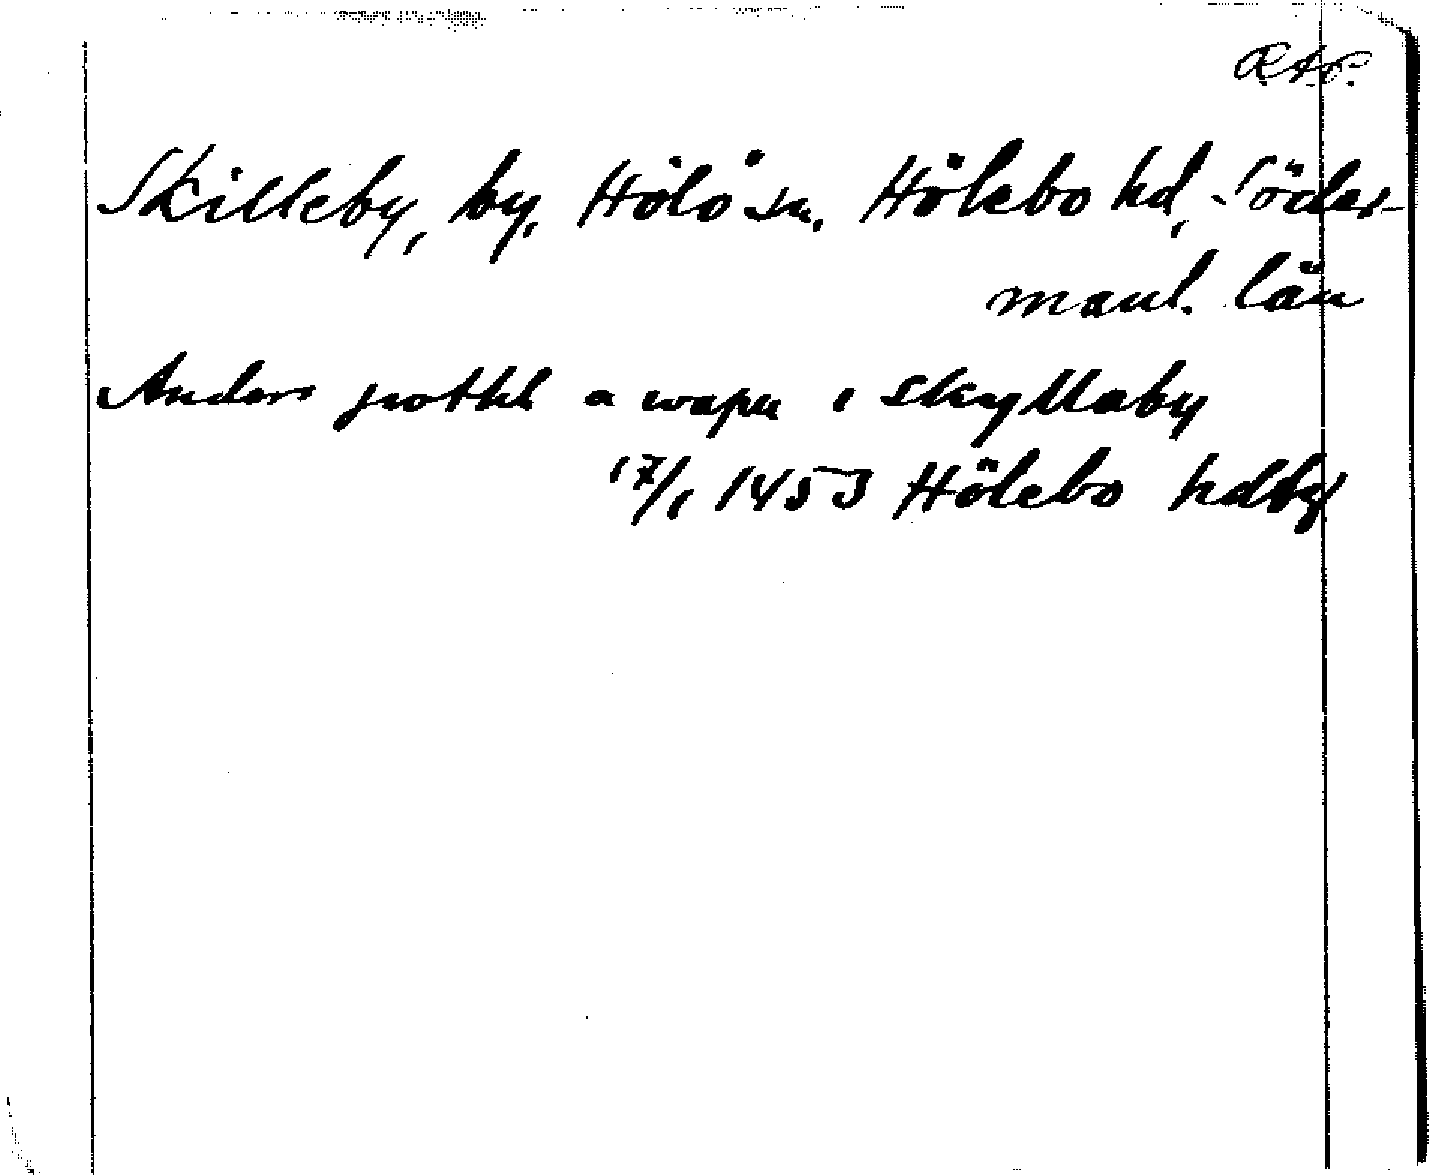 R.A.P.
Skilleby, by, Hölö sn. Hölebo hd, Söder-
manl. län
Anders jrothk a wapn i skyllaby
17/1 1453 Hölebo hdby